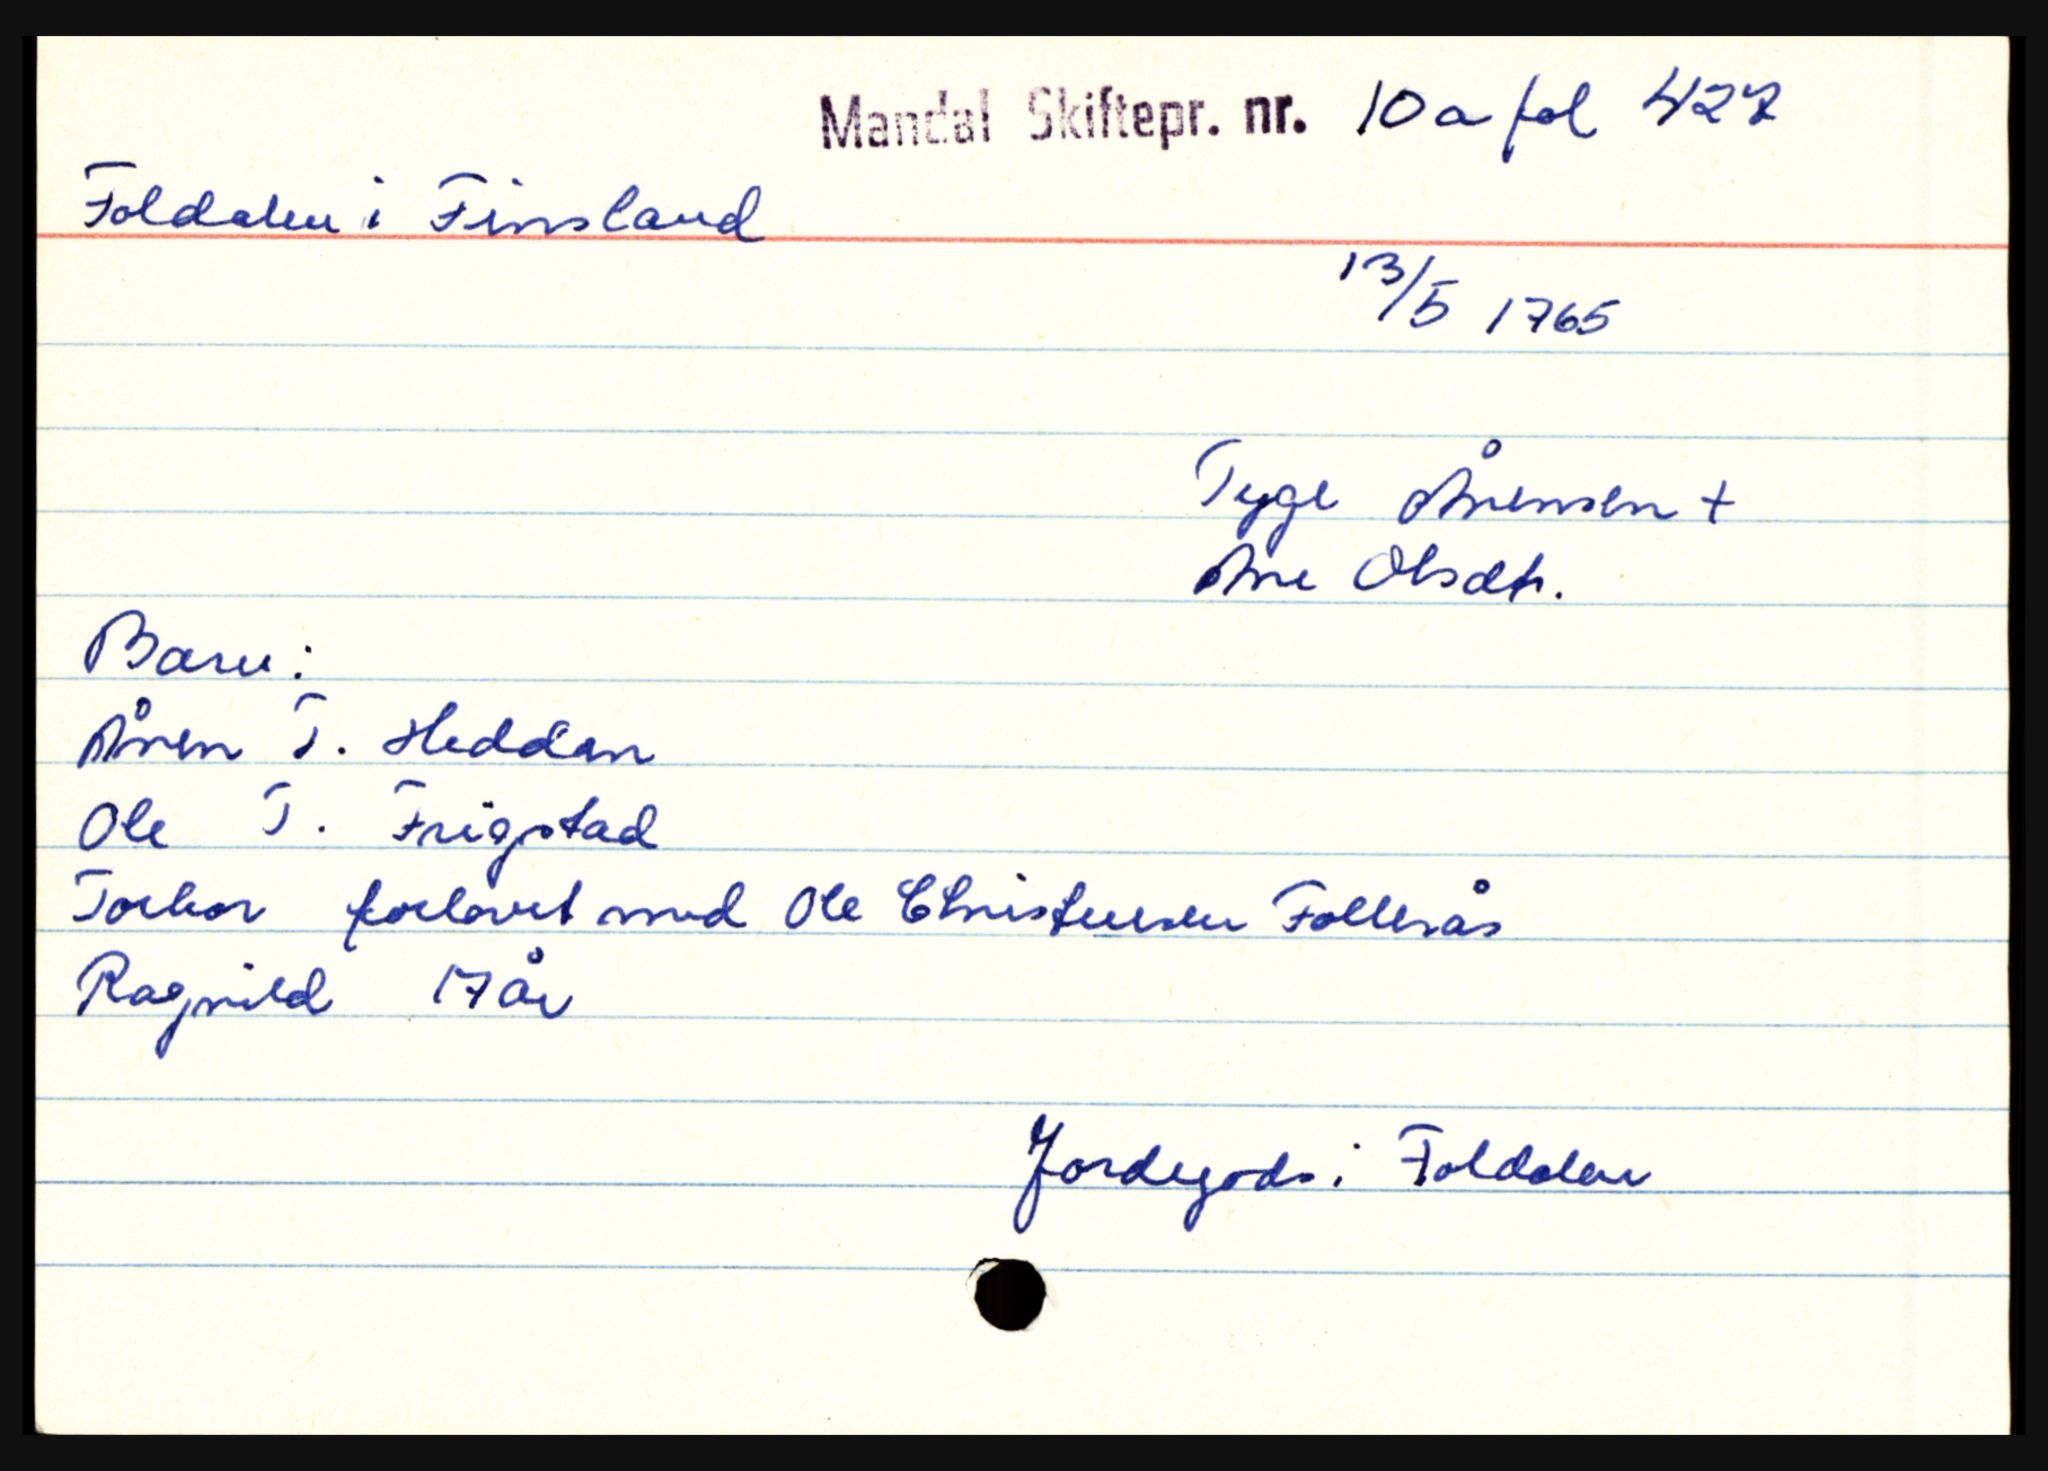 Mandal Skiftepr. nr. 10 a fol 427
Foldalen i Finsland
13/5 1765
Tyge Ånensen +
Ane Olsdtr.
Barn:
Ånen T. Heddan
Ole T. Frigstad
Torbor forlovet med Ole Christensen Follerås
Ragnild 17 år
Jordegods i Foldalen